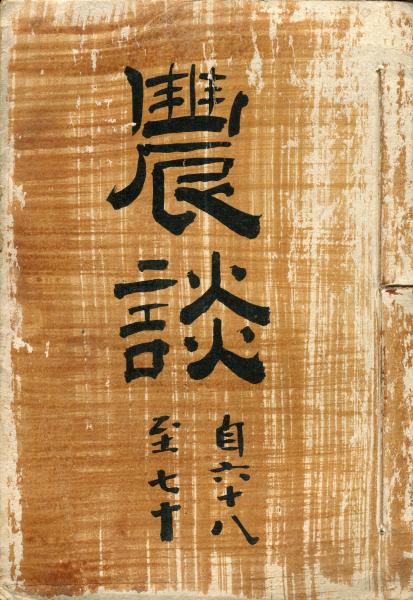 農談
自六十八
至七十